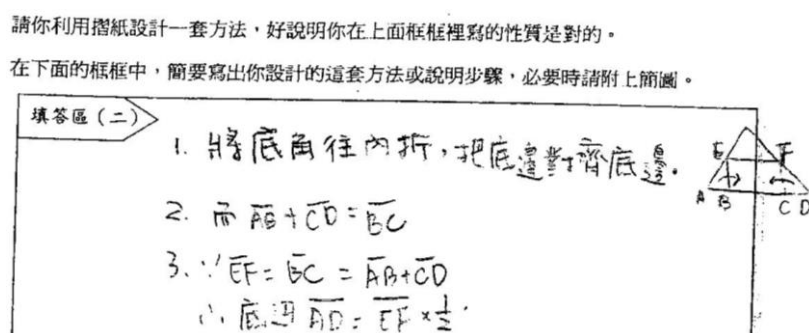 請你利用摺紙設計一套方法，好說明你在上面框框裡寫的性質是對的。
在下面的框框中，簡要寫出你設計的這套方法或說明步驟，必要時請附上簡圖。
填答區（二）
1. 將底角往內折，把底邊對齊底邊。
E F
A B C D
2. 而 AB + CD = BC
3. ∵ EF = BC = AB + CD
∴ 底邊 AD = EF × 1/2